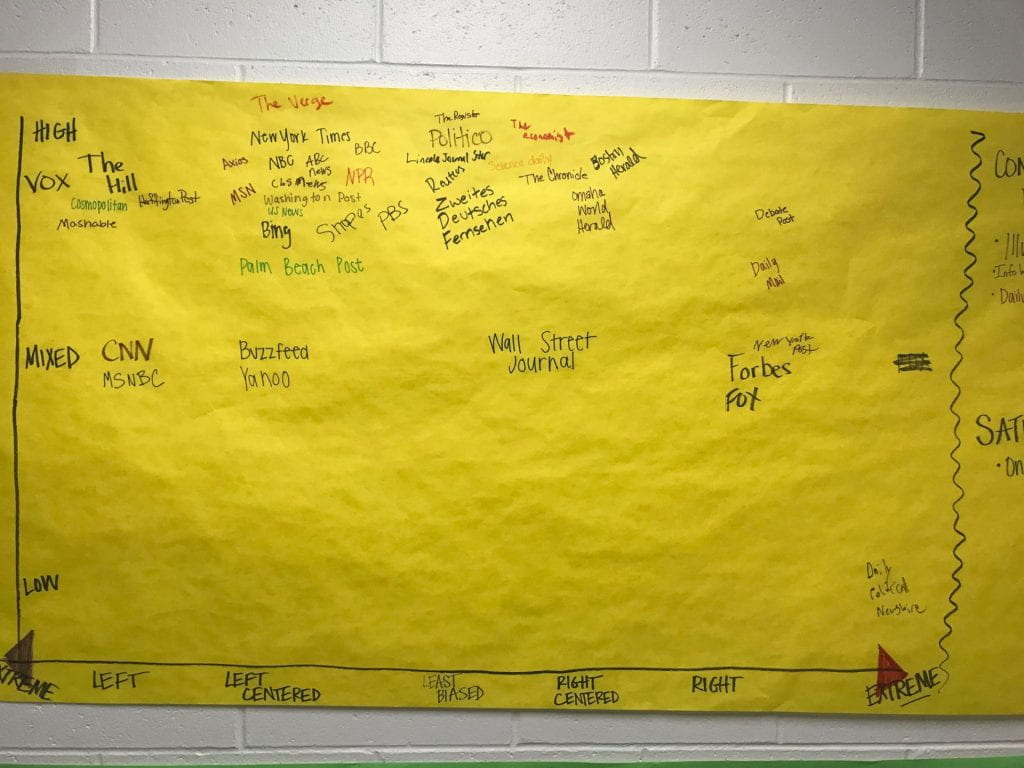 HIGH
VOX
The
Hill
Cosmopolitan
Huffington Post
Mashable
The Verge
New York Times
BBC
Axios
NBC
ABC
News
CBS News
MSN
NPR
Washington Post
US News
Bing
Snopes
PBS
Palm Beach Post
The Register
Politico
Lincoln Journal Star
Zweites
Deutsches
Fernsehen
The
economist
Science daily
The Chronicle
Boston
Herald
Omaha
World
Herald
Debate
Post
Daily
MIXED
CNN
MSNBC
Buzzfeed
Yahoo
Wall Street
Journal
New York
Post
Forbes
FOX
LOW
Daily
Political
Newswire
LEFT
LEFT
CENTERED
LEAST
BIASED
RIGHT
CENTERED
RIGHT
EXTREME